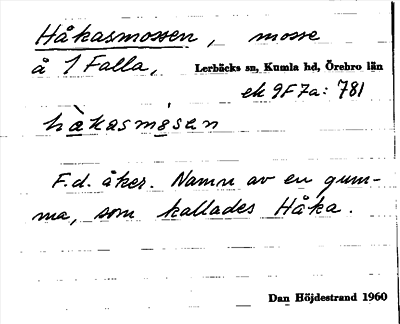 Håkasmossen, mosse
å 1 Falla, Lerbäcks sn, Kumla hd, Örebro län
ek 9F7a: 781
hàkasmɔ́sən
F.d. åker. Namn av en gum-
ma, som kallades Håka.
Dan Höjdestrand 1960